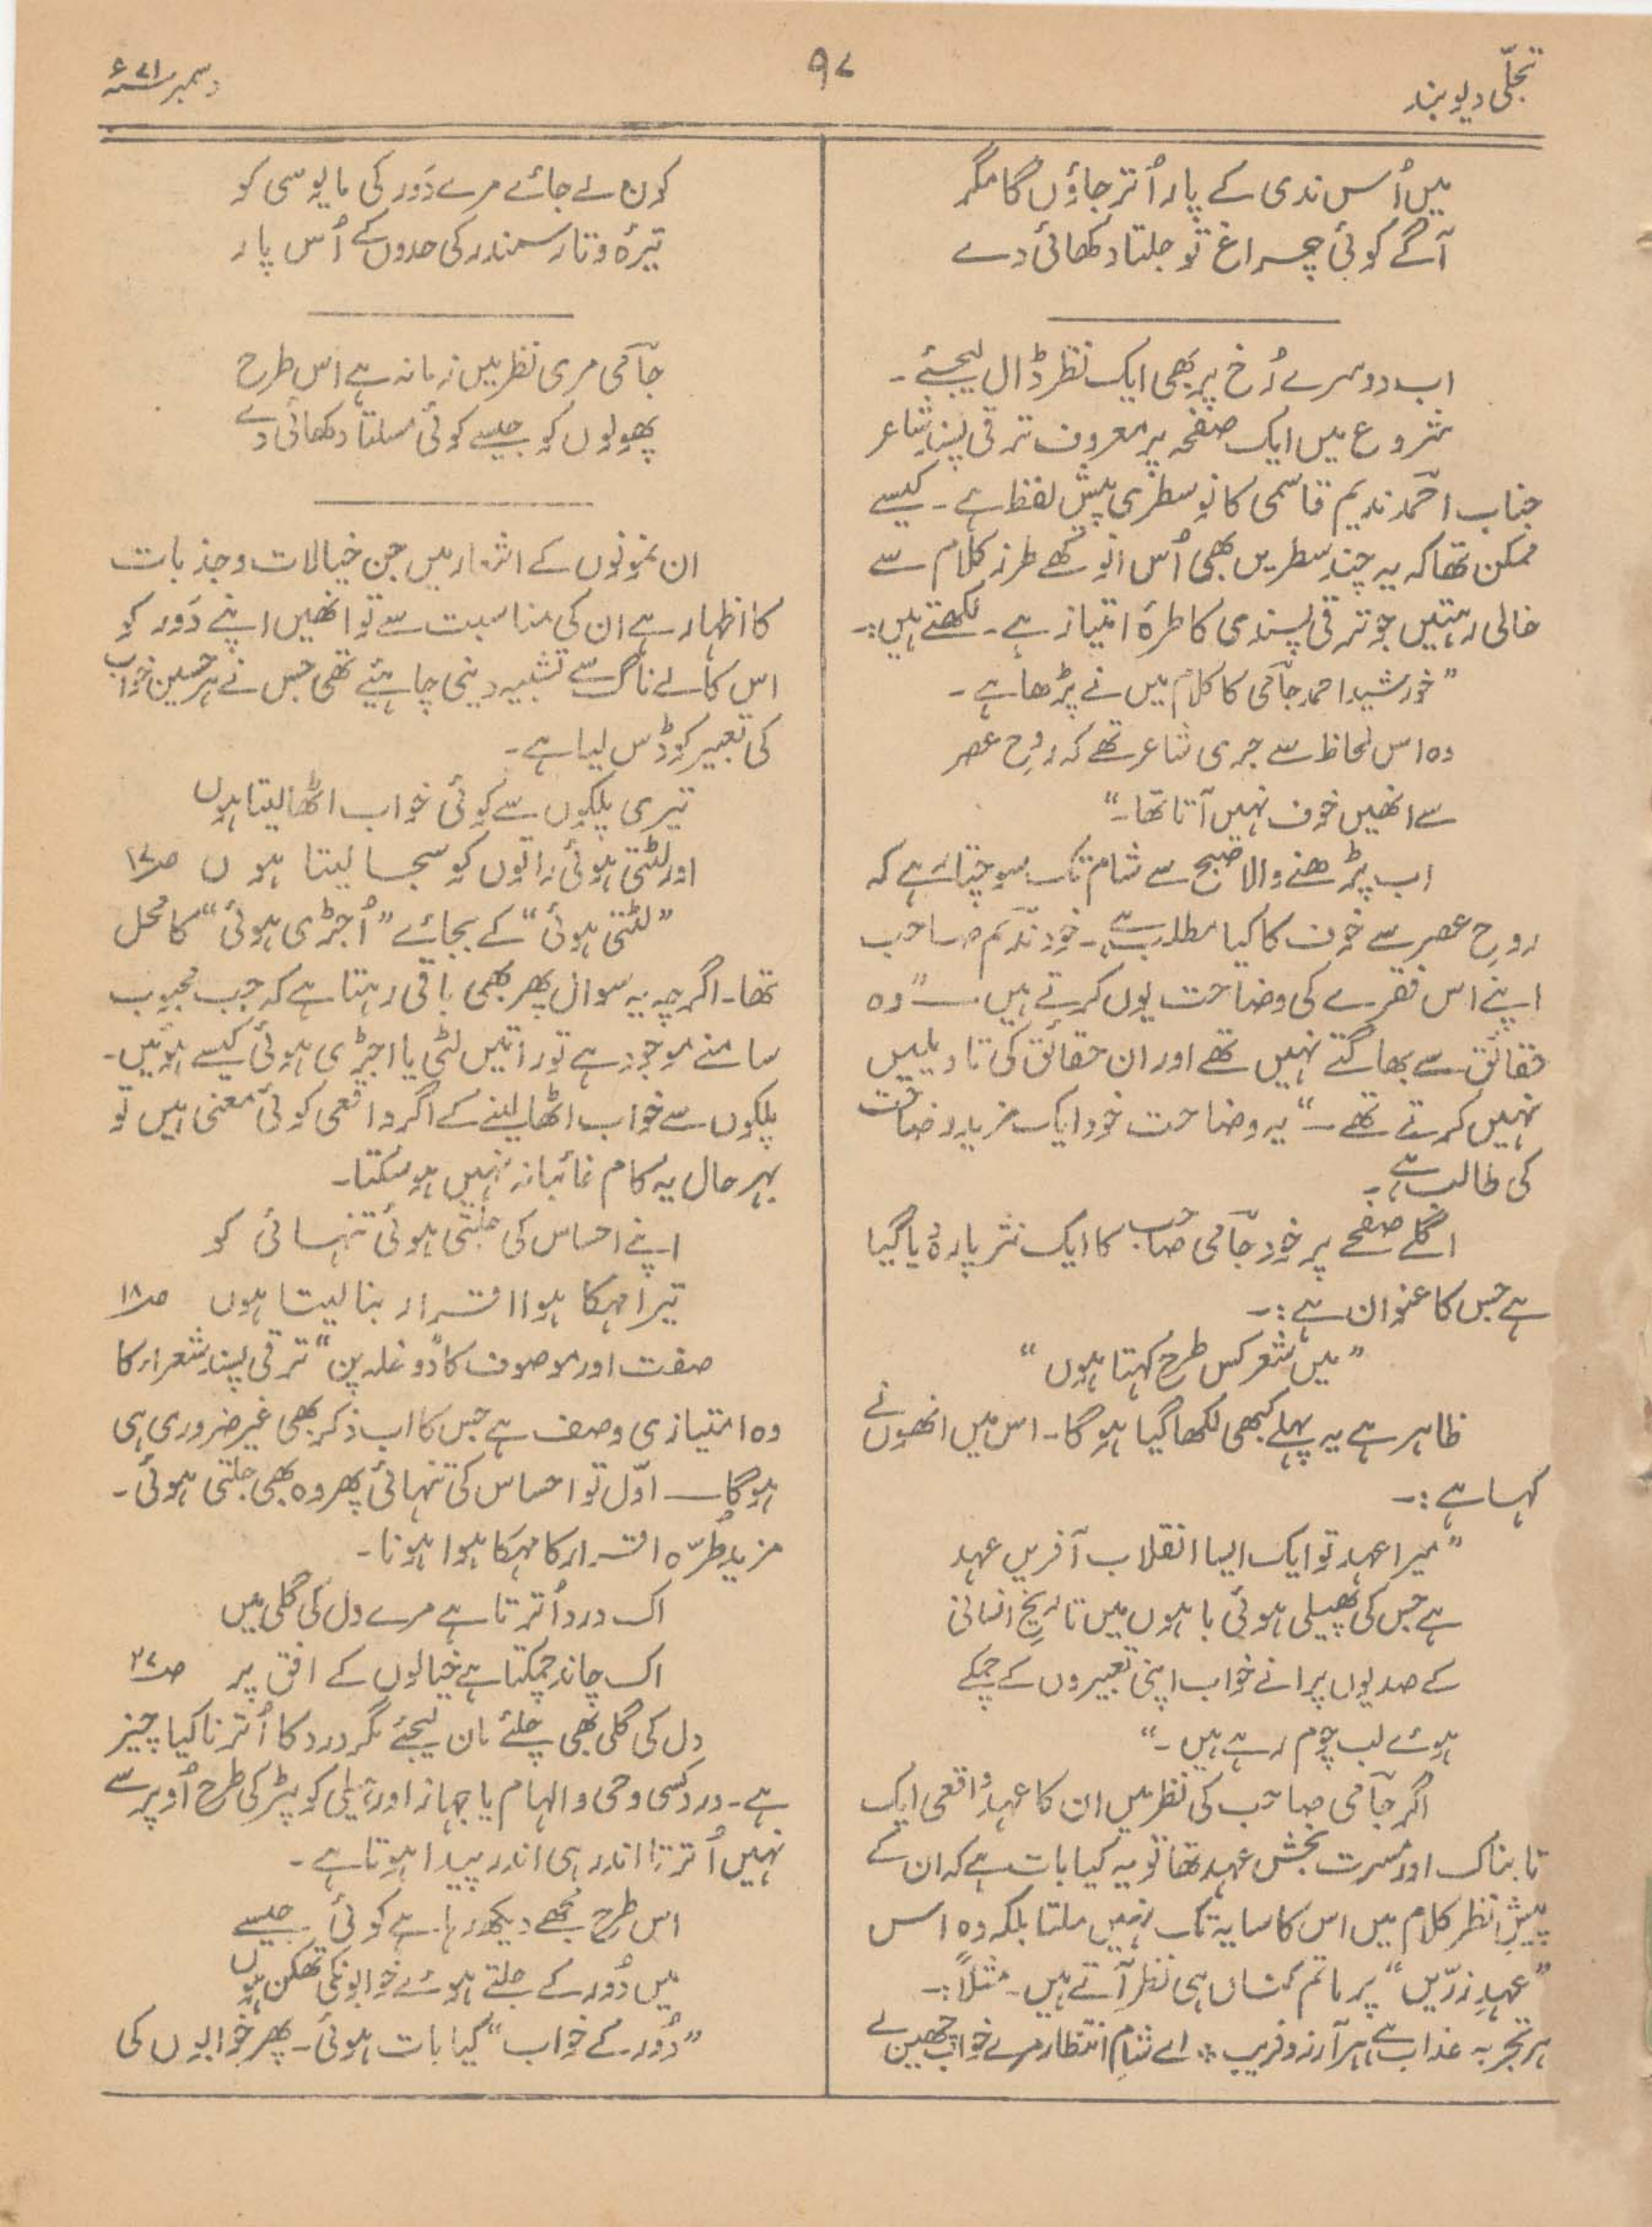 تجلّی دیوبند
۹۷
دسمبر ۷۱ء
میں اُس ندی کے پار اُتر جاؤں گا مگر
آگے کوئی چراغ تو جلتا دکھائی دے
اب دوسرے رُخ پر بھی ایک نظر ڈال لیجئے۔
شروع میں ایک صفحہ پر معروف ترقی پسند شاعر
جناب احمد ندیم قاسمی کا نو سطری پیش لفظ ہے۔ کیسے
ممکن تھا کہ یہ چند سطریں بھی اُس انوکھے طرز کلام سے
خالی رہتیں جو ترقی پسندی کا طرۂ امتیاز ہے۔ لکھتے ہیں:۔
”خورشید احمد جامی کا کلام میں نے پڑھا ہے۔
وہ اس لحاظ سے جری شاعر تھے کہ روحِ عصر
سے انھیں خوف نہیں آتا تھا۔“
اب پڑھنے والا صبح سے شام تک سوچتا رہے کہ
روحِ عصر سے خوف کا کیا مطلب ہے۔ خود ندیم صاحب
اپنے اس فقرے کی وضاحت یوں کرتے ہیں ــ ”وہ
حقائق سے بھاگتے نہیں تھے اور ان حقائق کی تاویلیں
نہیں کرتے تھے۔“ یہ وضاحت خود ایک مزید وضاحت
کی طالب ہے۔
اگلے صفحے پر خود جامی صاحب کا ایک نثر پارہ دیا گیا
ہے جس کا عنوان ہے:۔
”میں شعر کس طرح کہتا ہوں“
ظاہر ہے یہ پہلے کبھی لکھا گیا ہوگا۔ اس میں انھوں نے
کہا ہے:۔
”میرا عہد تو ایک ایسا انقلاب آفریں عہد
ہے جس کی پھیلی ہوئی باہوں میں تاریخِ انسانی
کے صدیوں پرانے خواب اپنی تعبیروں کے چمکے
ہوئے لب چوم رہے ہیں۔“
اگر جامی صاحب کی نظر میں ان کا عہد واقعی ایک
تابناک اور مسرت بخش عہد تھا تو یہ کیا بات ہے کہ ان کے
پیشِ نظر کلام میں اس کا سایہ تک نہیں ملتا بلکہ وہ اس
”عہدِ زرّیں“ پر ماتم کناں ہی نظر آتے ہیں۔ مثلاً:۔
ہر تجربہ عذاب ہے ہر آرزو فریب ؞ اے شامِ انتظار مرے خواب چھین لے
کون لے جائے مرے دَور کی مایوسی کو
تیرہ و تار سمندر کی حدوں کے اُس پار
جامی مری نظر میں زمانہ ہے اس طرح
پھولوں کو جیسے کوئی مسلتا دکھائی دے
ان نمونوں کے اشعار میں جن خیالات و جذبات
کا اظہار ہے ان کی مناسبت سے تو انھیں اپنے دَور کو
اس کالے ناگ سے تشبیہ دینی چاہئیے تھی جس نے ہر حسین خواب
کی تعبیر کو ڈس لیا ہے۔
تیری پلکوں سے کوئی خواب اٹھا لیتا ہوں
اور لٹتی ہوئی راتوں کو سجا لیتا ہوں ص۱۷
”لٹتی ہوئی“ کے بجائے ”اُجڑی ہوئی“ کا محل
تھا۔ اگرچہ یہ سوال پھر بھی باقی رہتا ہے کہ جب محبوب
سامنے موجود ہے تو راتیں لٹی یا اجڑی ہوئی کیسے ہوئیں۔
پلکوں سے خواب اٹھا لینے کے اگر واقعی کوئی معنی ہیں تو
بہرحال یہ کام غائبانہ نہیں ہو سکتا۔
اپنے احساس کی جلتی ہوئی تنہائی کو
تیرا مہکا ہوا اقرار بنا لیتا ہوں ص۱۸
صفت اور موصوف کا ”دوغلہ پن“ ترقی پسند شعراء کا
وہ امتیازی وصف ہے جس کا اب ذکر بھی غیر ضروری ہی
ہوگا ــ اوّل تو احساس کی تنہائی پھر وہ بھی جلتی ہوئی۔
مزید طُرّہ اقرار کا مہکا ہوا ہونا۔
اک درد اُترتا ہے مرے دل کی گلی میں
اک چاند چمکتا ہے خیالوں کے افق پر ص۲۷
دل کی گلی بھی چلئے مان لیجئے مگر درد کا اُترنا کیا چیز
ہے۔ درد کسی وحی و الہام یا جہاز اور ہیلی کوپٹر کی طرح اُوپر سے
نہیں اُترتا اندر ہی اندر پیدا ہوتا ہے۔
اس طرح مجھے دیکھ رہا ہے کوئی جیسے
میں دُور کے جلتے ہوئے خوابوں کی تھکن ہوں
”دُور کے خواب“ کیا بات ہوئی۔ پھر خوابوں کی